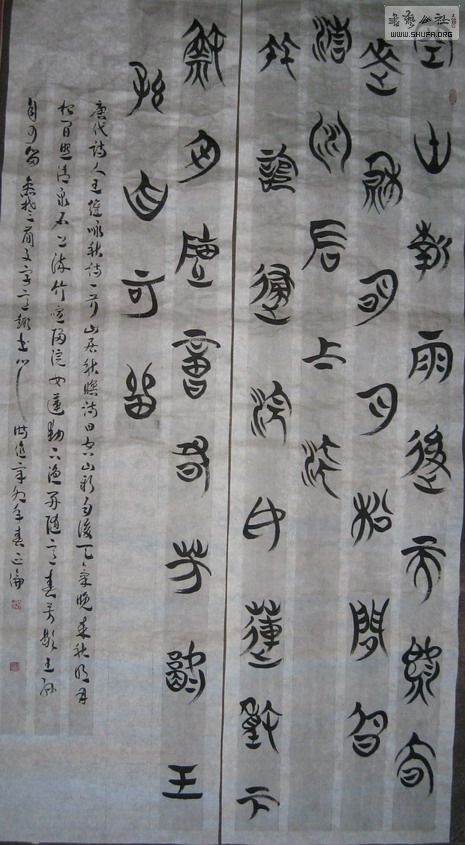 空山新雨後天氣晚
來秋明月松間照
清泉石上流
竹喧歸浣女蓮動下
漁舟隨意春芳歇王
孫自可留
唐代詩人王維咏秋詩一首山居秋暝詩曰空山新雨後天氣晚來秋明月
松間照清泉石上流竹喧歸浣女蓮動下漁舟隨意春芳歇王孫
自可留
WWW.SHUFA.ORG